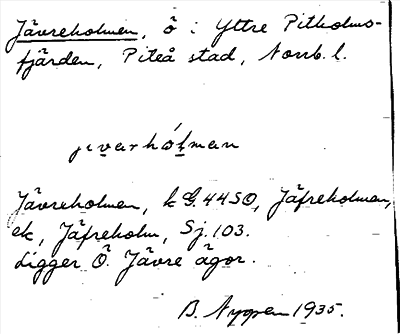 Jävreholmen, ö i Yttre Pitholms-
fjärden, Piteå stad, Norrb. l.
jɪvarhólman
Jävreholmen, k G. 44 SO, Jäfreholmen,
ek, Jäfreholm, Sj. 103.
Ligger Ö. Jävre ägor.
B. Nygren 1935.